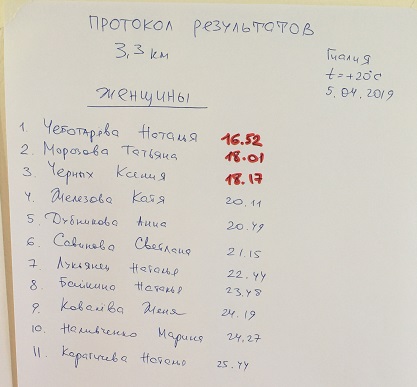 Протокол результатов
3,3 км
Гиалия
t=+20°C
5.04.2019
Женщины
1. Чеботарева Наталья 16.52
2. Морозова Татьяна 18.01
3. Черных Ксения 18.17
4. Железова Катя 20.11
5. Дубникова Анна 20.49
6. Савинова Светлана 21.15
7. Лукьянец Наталья 22.44
8. Наталья 23.48
9. Ковалёва Женя 24.19
10. Наливченко Марина 24.27
11. Каратичева Наталья 25.44